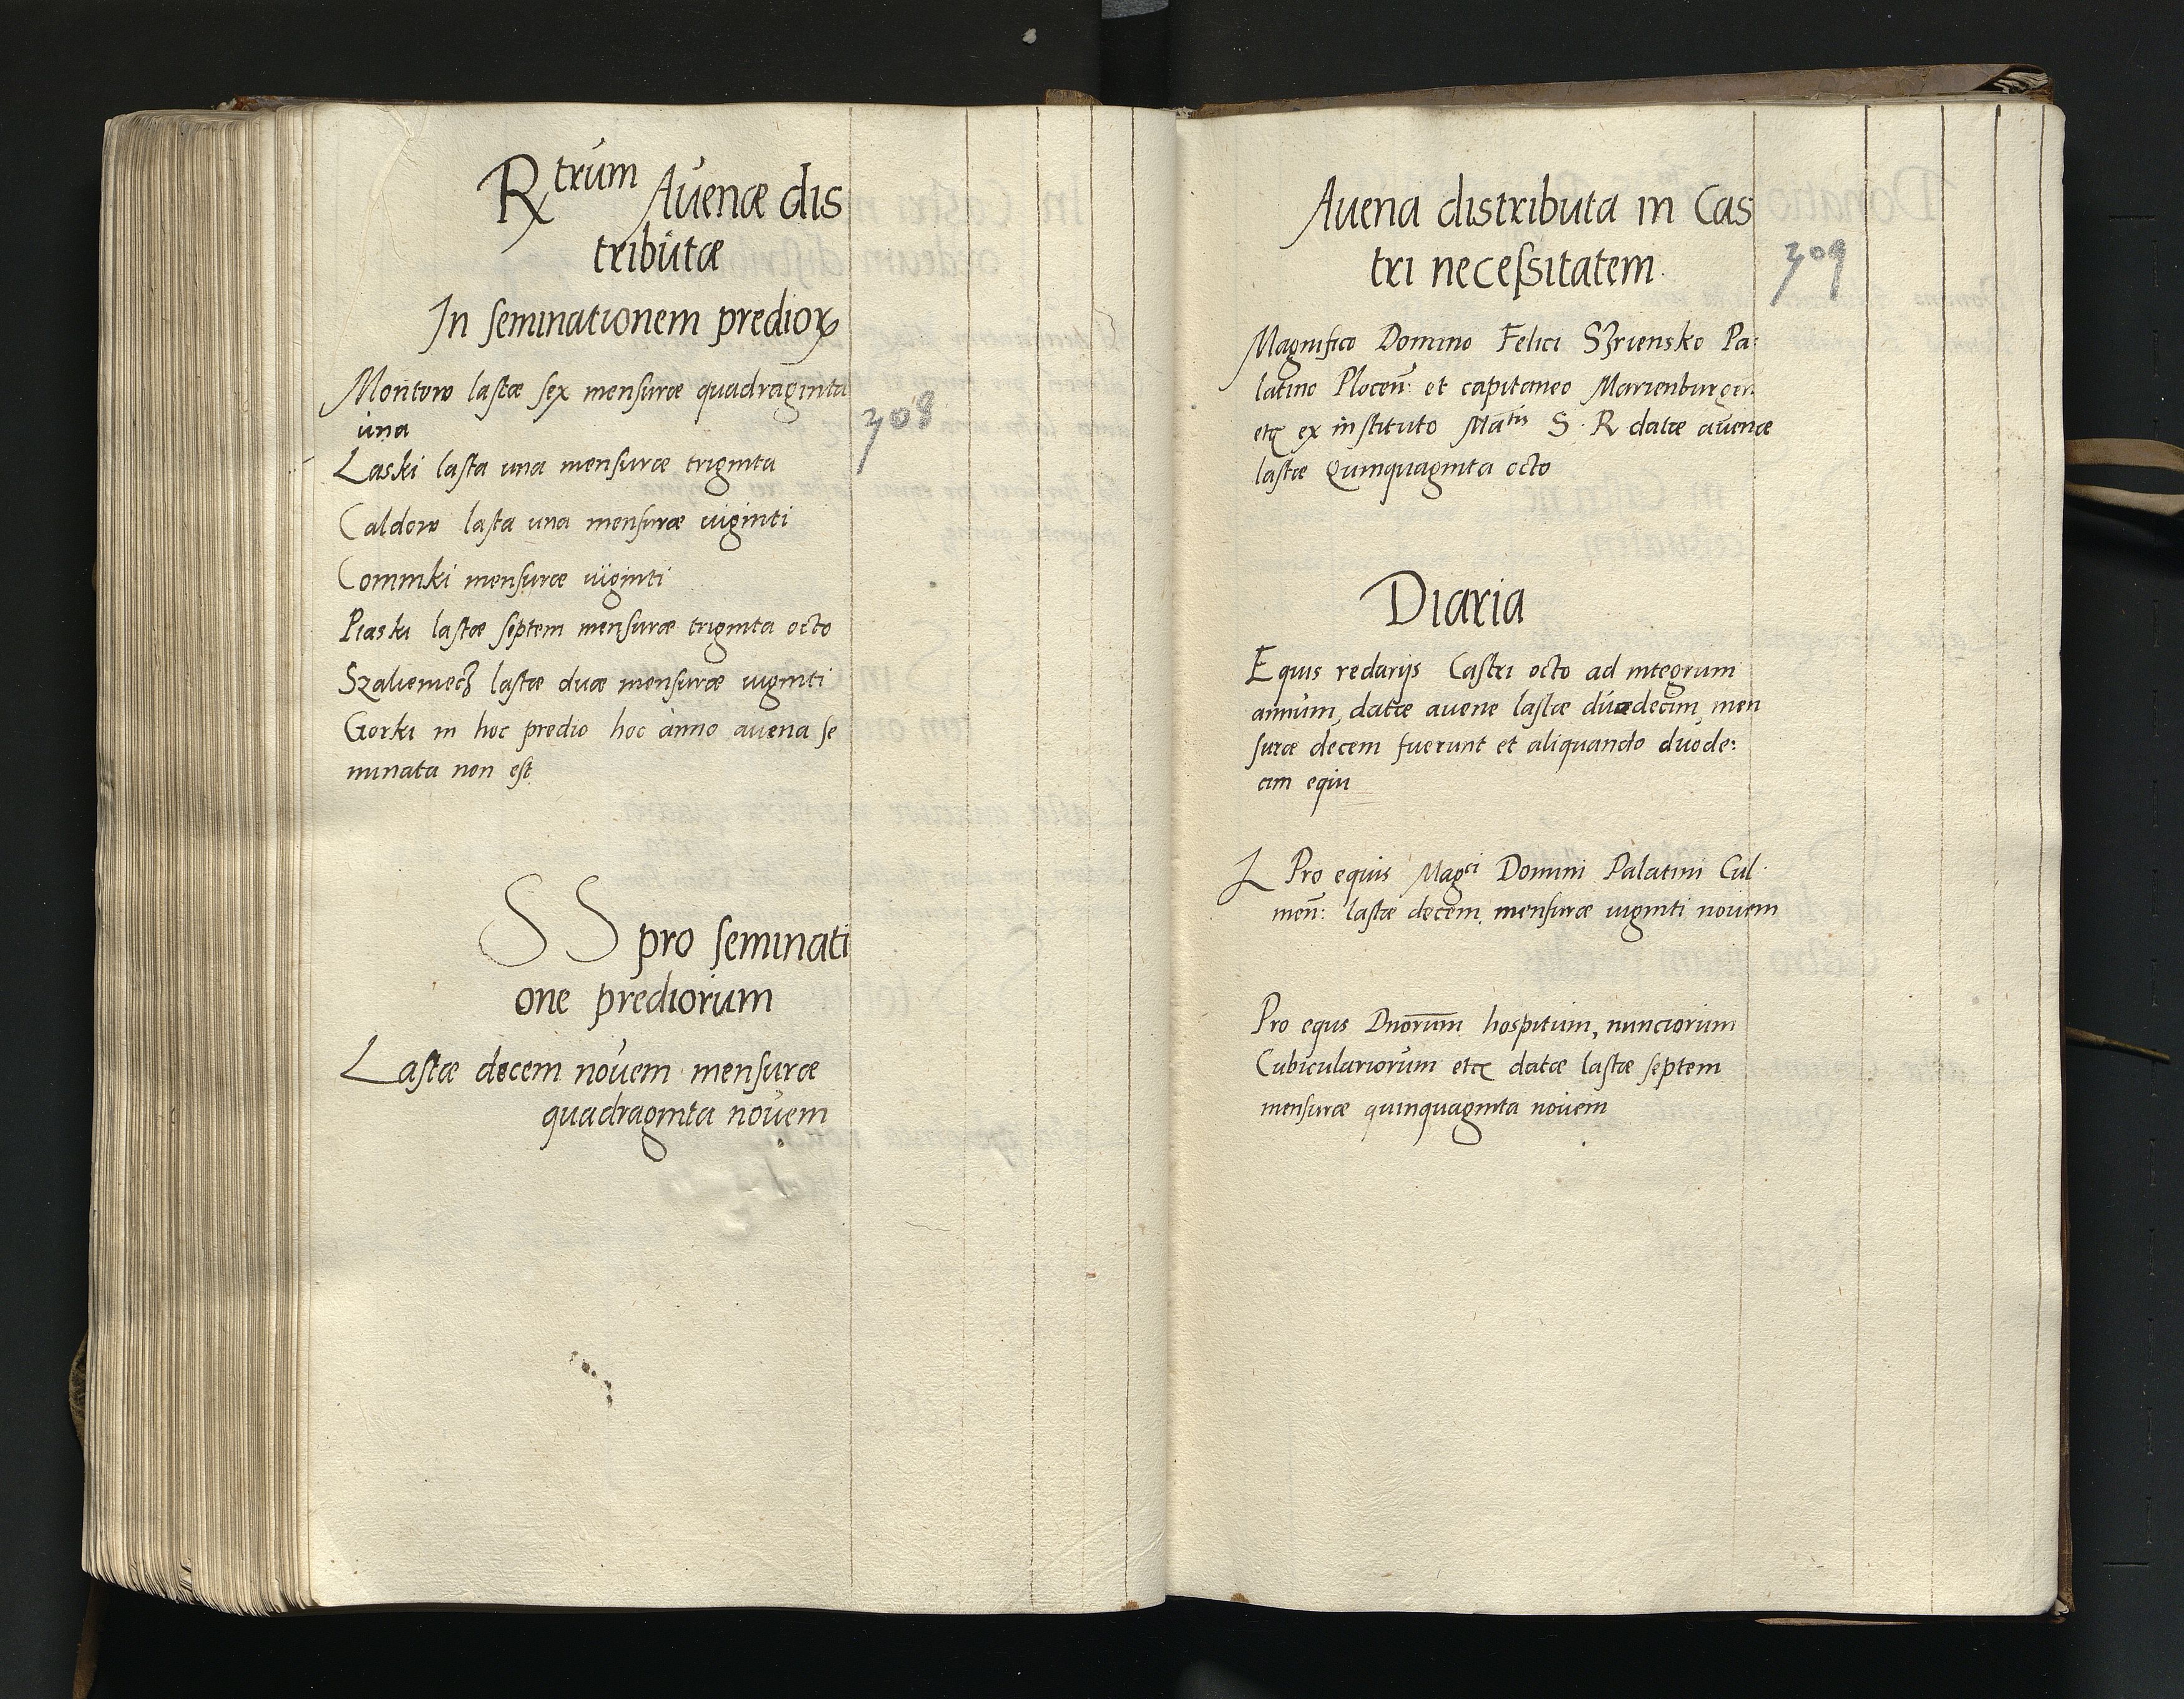 Rtrum Auenæ dis
tributæ
In seminationem predior
Montow lastæ sex mensuræ quadraginta
una
308
Laski lasta una mensuræ triginta
Caldow lasta una mensuræ uiginti
Comınki mensuræ uiginti
Piaski lastæ septem mensuræ triginta octo
Szaliemecz lastæ duæ mensuræ uiginti
Gorki in hoc predio hoc anno auena se
minata non est
SS pro seminati
one prediorum
Lastæ decem nouem mensuræ
quadraginta nouem
Auena distributa in Cas
tri necessitatem
309
Magnifico Domino Felici Szriensko Pa:
latino Plocen: et capitaneo Marienburgen
etc ex instituto Matis S. R datæ auenæ
lastæ Quinquaginta octo
Diaria
Equis redarijs Castri octo ad integrum
annum, datæ auene lastæ duædecim, men
suræ decem fuerunt et aliquando duode:
cim equi
Pro equis Magci Domini Palatini Cul
men: lastæ decem, mensuræ uiginti nouem
Pro equs Dnorum hospitum, nunciorum
Cubiculariorum etc datæ lastæ septem
mensuræ quinquaginta nouem